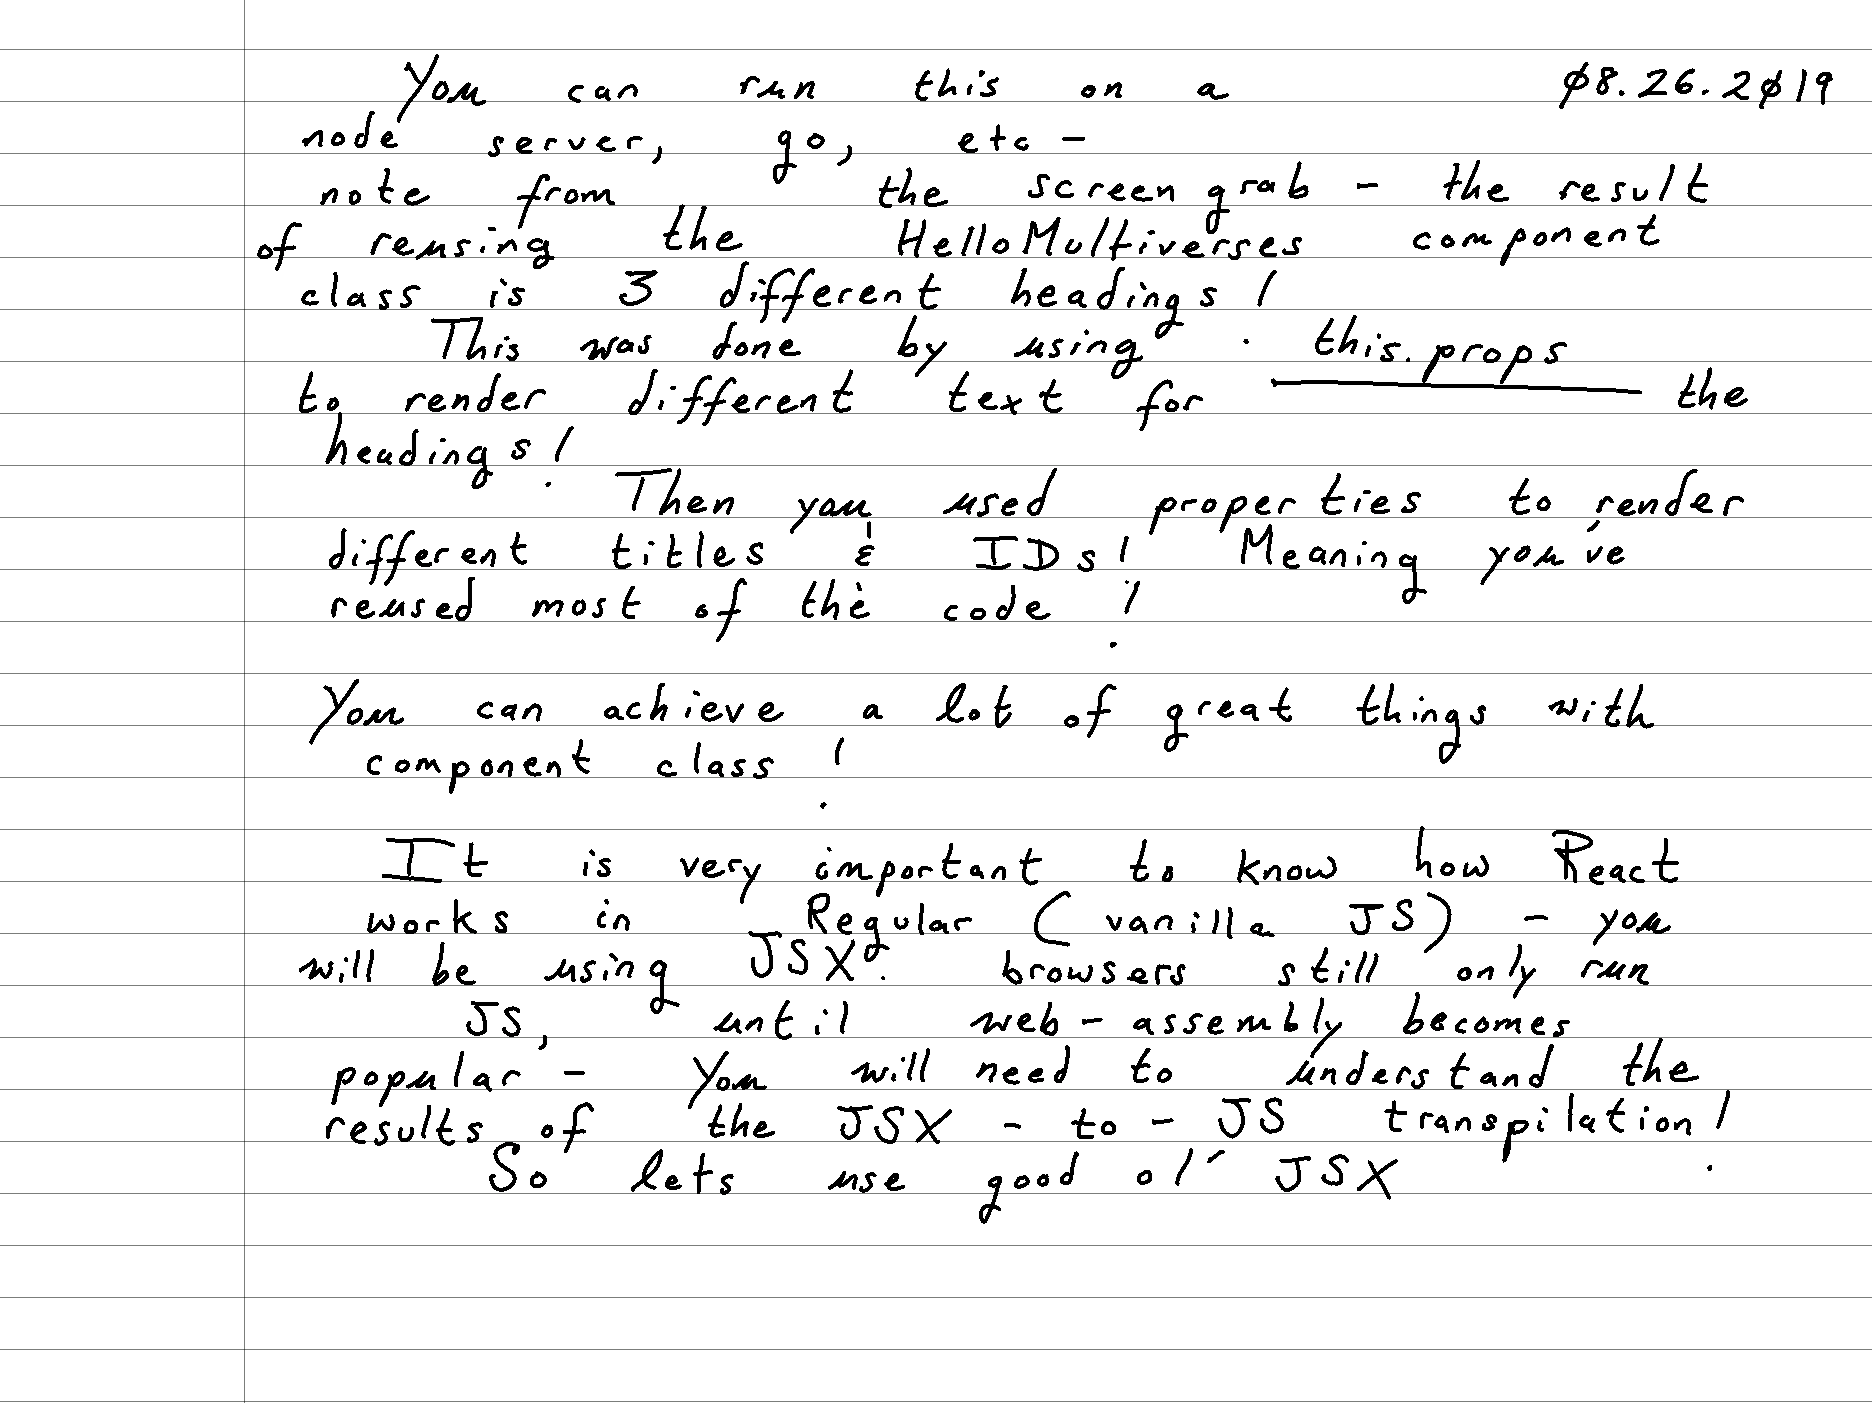 You can run this on a 08.26.2019
node server, go, etc -
note from the screengrab - the result
of reusing the HelloMultiverses component
class is 3 different headings!
This was done by using this.props
to render different text for the
headings!
Then you used properties to render
different titles & IDs! Meaning you've
reused most of the code!
You can achieve a lot of great things with
component class!
It is very important to know how React
works in Regular (vanilla JS) - you
will be using JSX. browsers still only run
JS, until web-assembly becomes
popular - You will need to understand the
results of the JSX-to-JS transpilation!
So lets use good ol' JSX